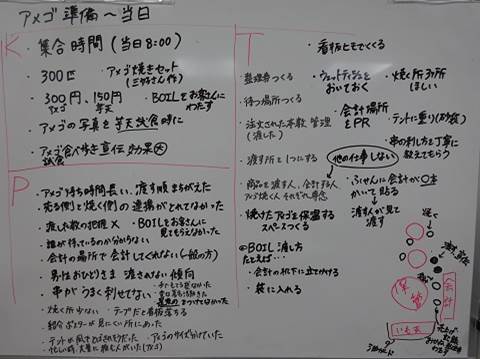 アメゴ準備〜当日
K
・集合時間(当日8:00)
・300匹
・アメゴ焼きセット
・300円、150円
アメゴ 芋天
・BOILをお客さんに
わたす
・アメゴの写真を芋天試食時に
・アメゴ食べ歩き宣伝効果大
試食
P
・アメゴ待ち時間長い、渡す順まちがえた
・売る側と焼く側の連携がとれてなかった
・渡した数の把握×
・BOILをお客さんに
見てもらえなかった
・誰が待っているのか分からない
・会計の場所で会計してくれない(一般の方)
・男性おひとりさま 渡されない傾向
・串がうまく刺せてない
・焼く所少ない
・テープだと看板落ちる
・紹介ポスターが見にくい所にあった
・アメゴのサイズが分けていた
T
・看板ヒモでくくる
・整理券つくる
・ウェットティッシュを
おいておく
・焼く所3ヶ所
ほしい
・待つ場所つくる
・会計場所
をPR
・注文された本数管理
(渡した)
・テントに重り(砂袋)
・串の刺し方を丁寧に
教えてもらう
・渡す所1つにする
他の仕事しない
・商品を渡す人、会計する人、
アメゴ焼く人 それぞれ専念
・ふせんに会計が○本
かいて貼る
↓
渡す人が見て
渡す
・焼けたアメゴを保温する
スペースつくる
◎BOIL渡し方
たとえば…
・会計の机下に立てかける
・袋に入れる
会計
いも天